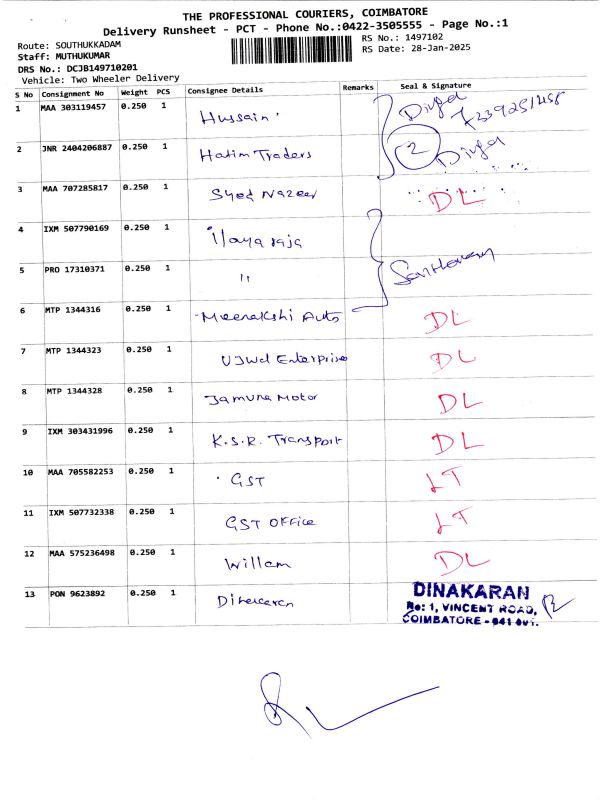 THE PROFESSIONAL COURIERS, COIMBATORE
Delivery Runsheet - PCT - Phone No.:0422-3505555 - Page No.:1
Route: SOUTHUKKADAM
RS No.: 1497102
Staff: MUTHUKUMAR
RS Date: 28-Jan-2025
DRS No.: DCJB149710201
Vehicle: Two Wheeler Delivery
S No Consignment No Weight PCS Consignee Details Remarks Seal & Signature
1 MAA 303119457 0.250 1 Hussain Divya
2 JNR 2404206887 0.250 1 Hatim Traders 2 Divya
3 MAA 707285817 0.250 1 Syed Nazeer DL
4 IXM 507790169 0.250 1 Ilayaraja
5 PRO 17310371 0.250 1 "
6 MTP 1344316 0.250 1 Meenakshi Auto DL
7 MTP 1344323 0.250 1 Enterprises DL
8 MTP 1344328 0.250 1 Jamuna Motor DL
9 IXM 303431996 0.250 1 K.S.R. Transport DL
10 MAA 705582253 0.250 1 GST LT
11 IXM 507732338 0.250 1 GST OFFice LT
12 MAA 575236498 0.250 1 Willam DL
13 PON 9623892 0.250 1 DINAKARAN
No: 1, VINCENT ROAD,
COIMBATORE - 641 001.